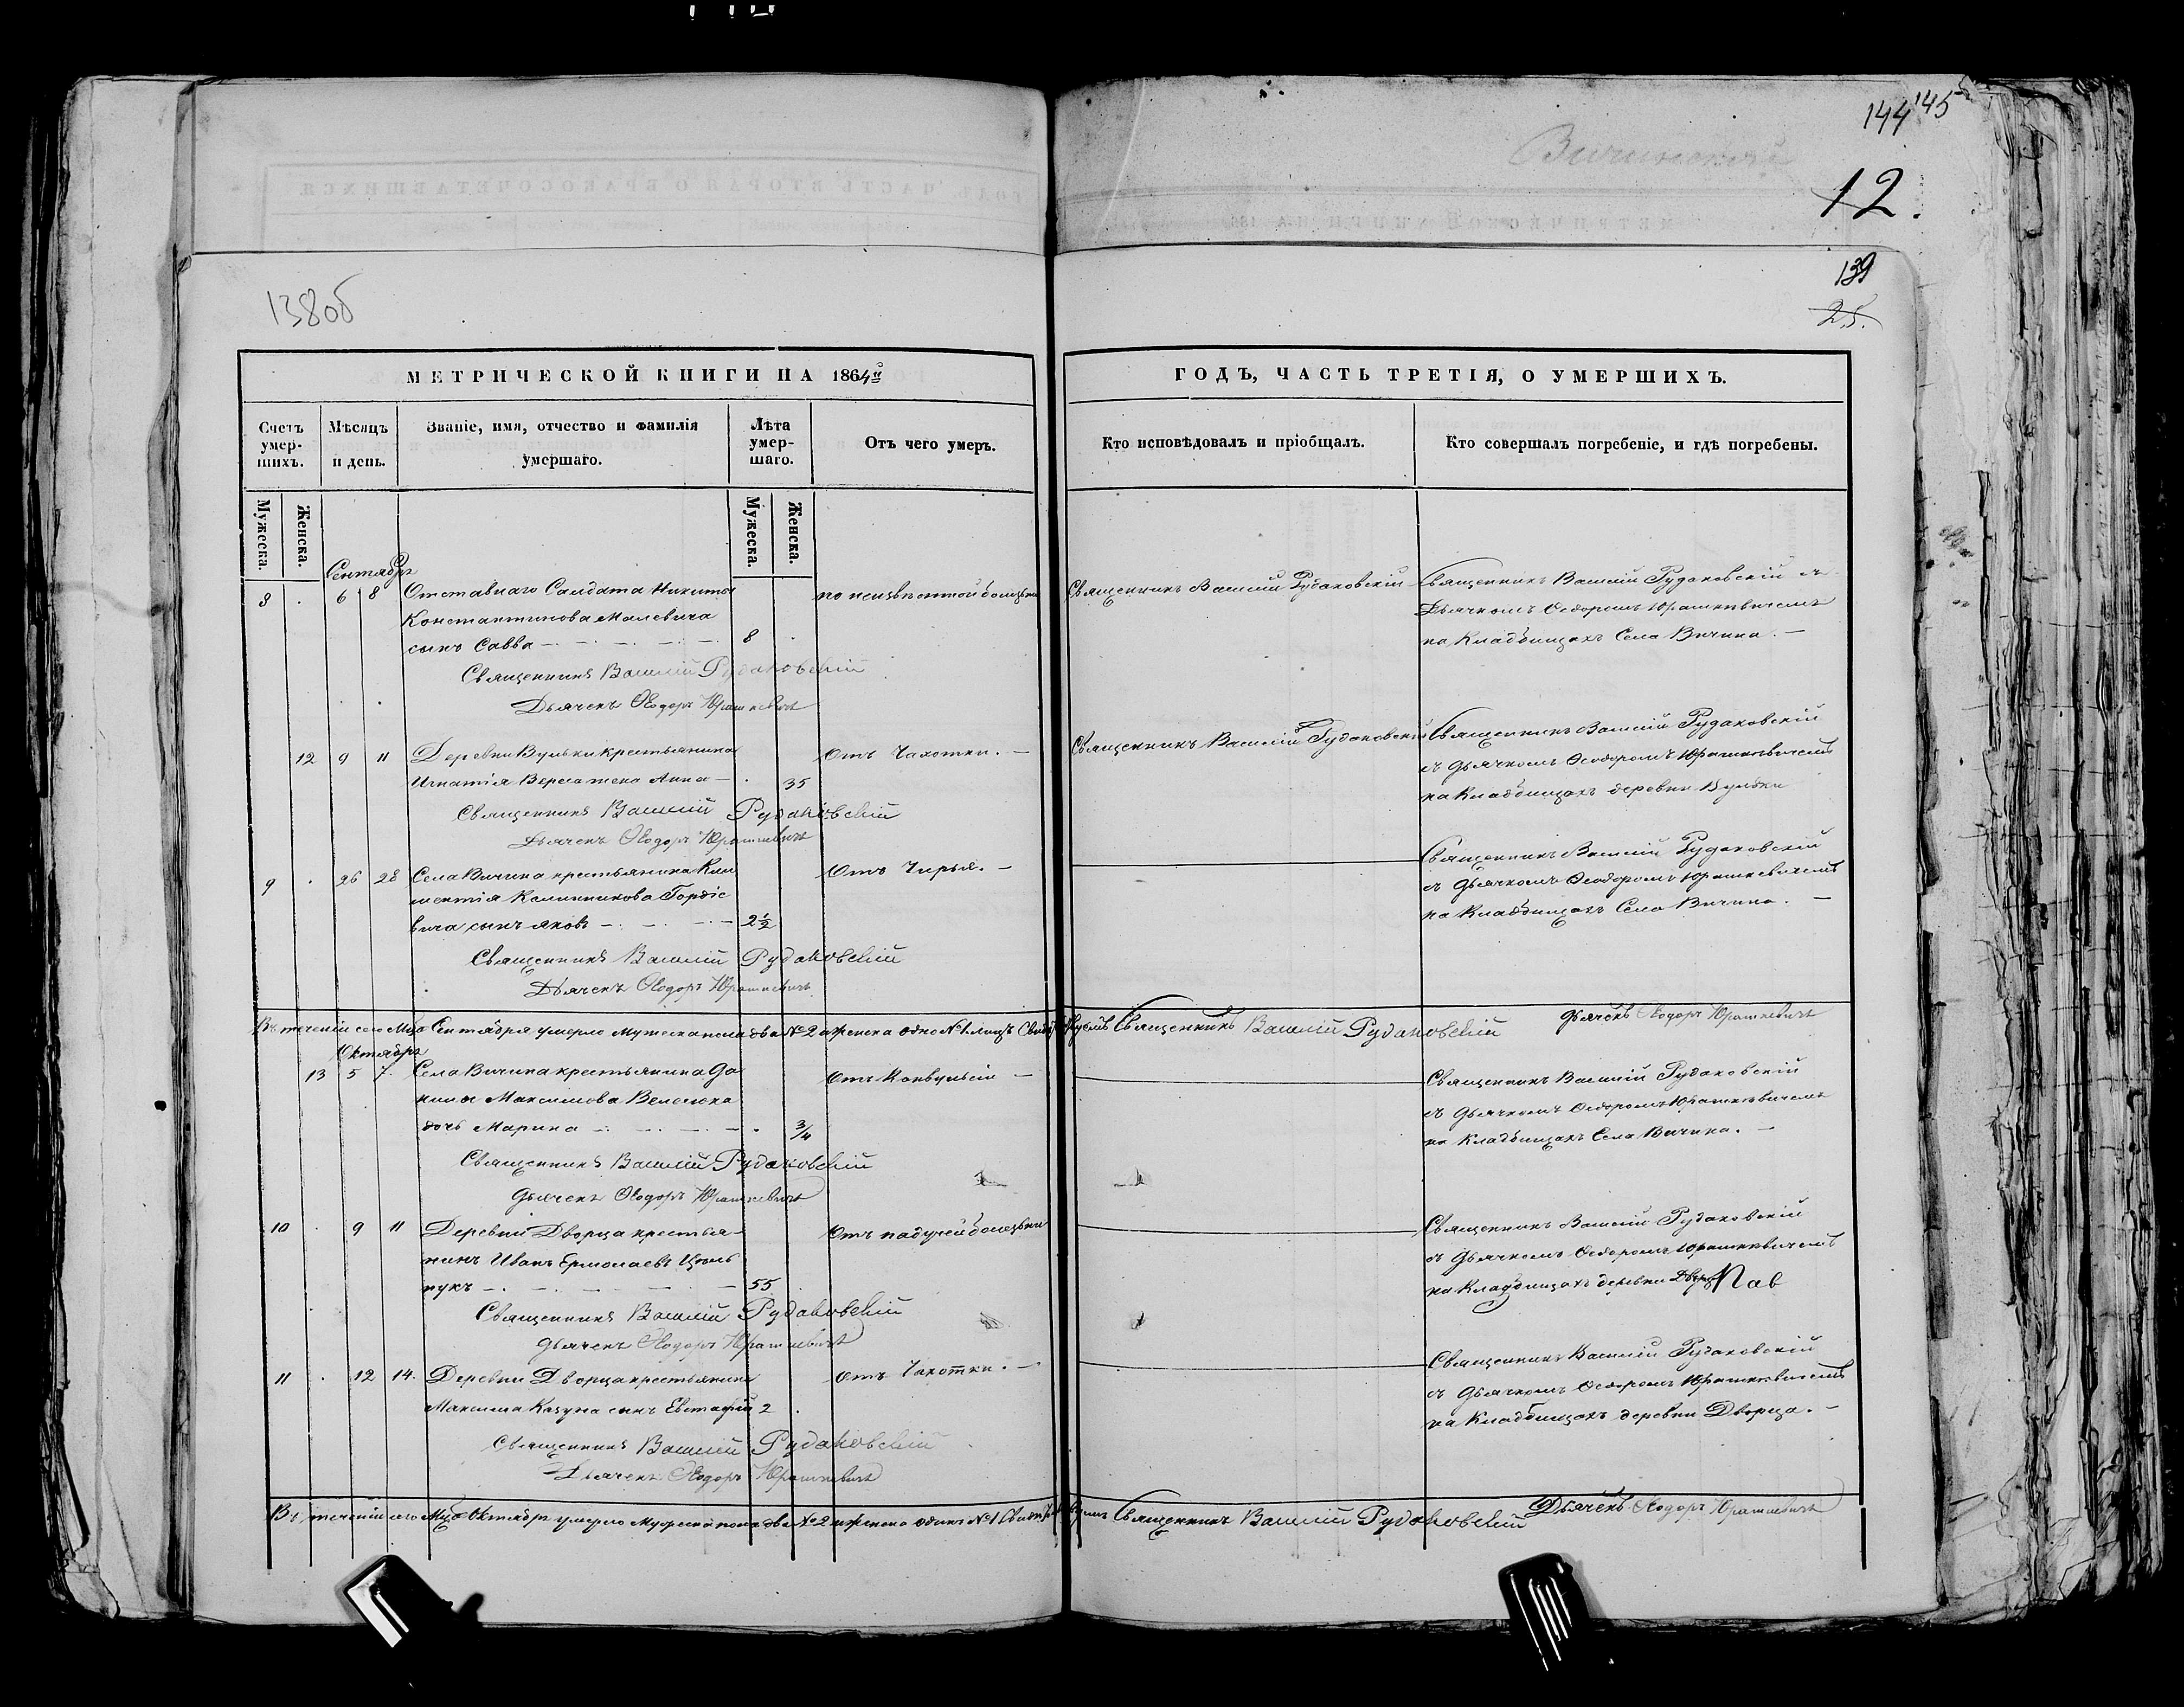 144 145
Вичинской
12.
139
25.
138об
МЕТРИЧЕСКОЙ КНИГИ НА 1864й
ГОДЪ, ЧАСТЬ ТРЕТІЯ, О УМЕРШИХЪ.
Счетъ умер-шихъ.
Мѣсяцъ и день.
Званіе, имя, отчество и фамилія умершаго.
Лѣта умер-шаго.
Отъ чего умеръ.
Кто исповѣдовалъ и пріобщалъ.
Кто совершалъ погребеніе, и гдѣ погребены.
Мужеска.
Женска.
Мужеска.
Женска.
Сентябрь
8 . 6 8 Отставнаго Салдата Никиты по неизвѣстной болѣзни Священникъ Василій Рудаковскій Священникъ Василій Рудаковскій съ
Константинова Малевича Дьячкомъ Ѳеодоромъ Юрашкевичемъ
сынъ Савва 8 . на Кладбищахъ Села Вичина. —
Священникъ Василій Рудаковскій
Дьячекъ Ѳеодоръ Юрашкевичъ
12 9 11 Деревни Вульки крестьянина Отъ Чахотки. — Священникъ Василій Рудаковскій Священникъ Василій Рудаковскій
Игнатія Анна — . 35 съ Дьячкомъ Ѳеодоромъ Юрашкевичемъ
на Кладбищахъ деревни Вульки
Священникъ Василій Рудаковскій
Дьячекъ Ѳеодоръ Юрашкевичъ
9 . 26 28 Села Вичина крестьянина Кли Отъ Чирья. — Священникъ Василій Рудаковскій
ментія Калинникова Гордіе съ Дьячкомъ Ѳеодоромъ Юрашкевичемъ
вича сынъ Яковъ 2½ на Кладбищахъ Села Вичина. —
Священникъ Василій Рудаковскій
Дьячекъ Ѳеодоръ Юрашкевичъ
Въ теченіи сего Мца Сентября умерло мужеска пола два №2 а женска одно №1 лицъ Священникъ Василій Рудаковскій Дьячекъ Ѳеодоръ Юрашкевичъ
Октябрь
13 5 7. Села Вичина крестьянина Да Отъ Конвульсіи — Священникъ Василій Рудаковскій
нила Максимова Велесюка съ Дьячкомъ Ѳеодоромъ Юрашкевичемъ
дочь Марина — . 3/4 на Кладбищахъ Села Вичина. —
Священникъ Василій Рудаковскій
Дьячекъ Ѳеодоръ Юрашкевичъ
10 . 9 11 Деревни Дворца крестья- Отъ падучей болѣзни Священникъ Василій Рудаковскій
нинъ Иванъ Ермолаевъ съ Дьячкомъ Ѳеодоромъ Юрашкевичемъ
55 . на Кладбищахъ деревни
Священникъ Василій Рудаковскій
Дьячекъ Ѳеодоръ Юрашкевичъ
11 . 12 14. Деревни Дворца крестьянина Отъ Чахотки. — Священникъ Василій Рудаковскій
Максима Казуна сынъ Евстафій 2 . съ Дьячкомъ Ѳеодоромъ Юрашкевичемъ
на Кладбищахъ деревни Дворца. —
Священникъ Василій Рудаковскій
Дьячекъ Ѳеодоръ Юрашкевичъ
Въ теченіи сего Мца Октября умерло Мужеска пола два №2 женска одинъ №1 Священникъ Василій Рудаковскій Дьячекъ Ѳеодоръ Юрашкевичъ